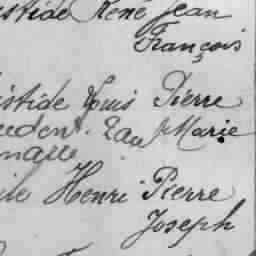 istide René Jean
François
istide Louis Pierre
Marie
ile Henri Pierre
Joseph